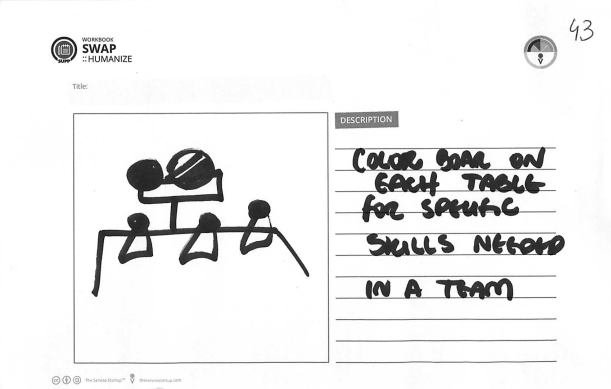 43
WORKBOOK
SWAP
:: HUMANIZE
SUPP
Title:
DESCRIPTION
COLOR BOAR ON
EACH TABLE
FOR SPECIFIC
SKILLS NEEDED
IN A TEAM
The Service Startup™ theservicestartup.com